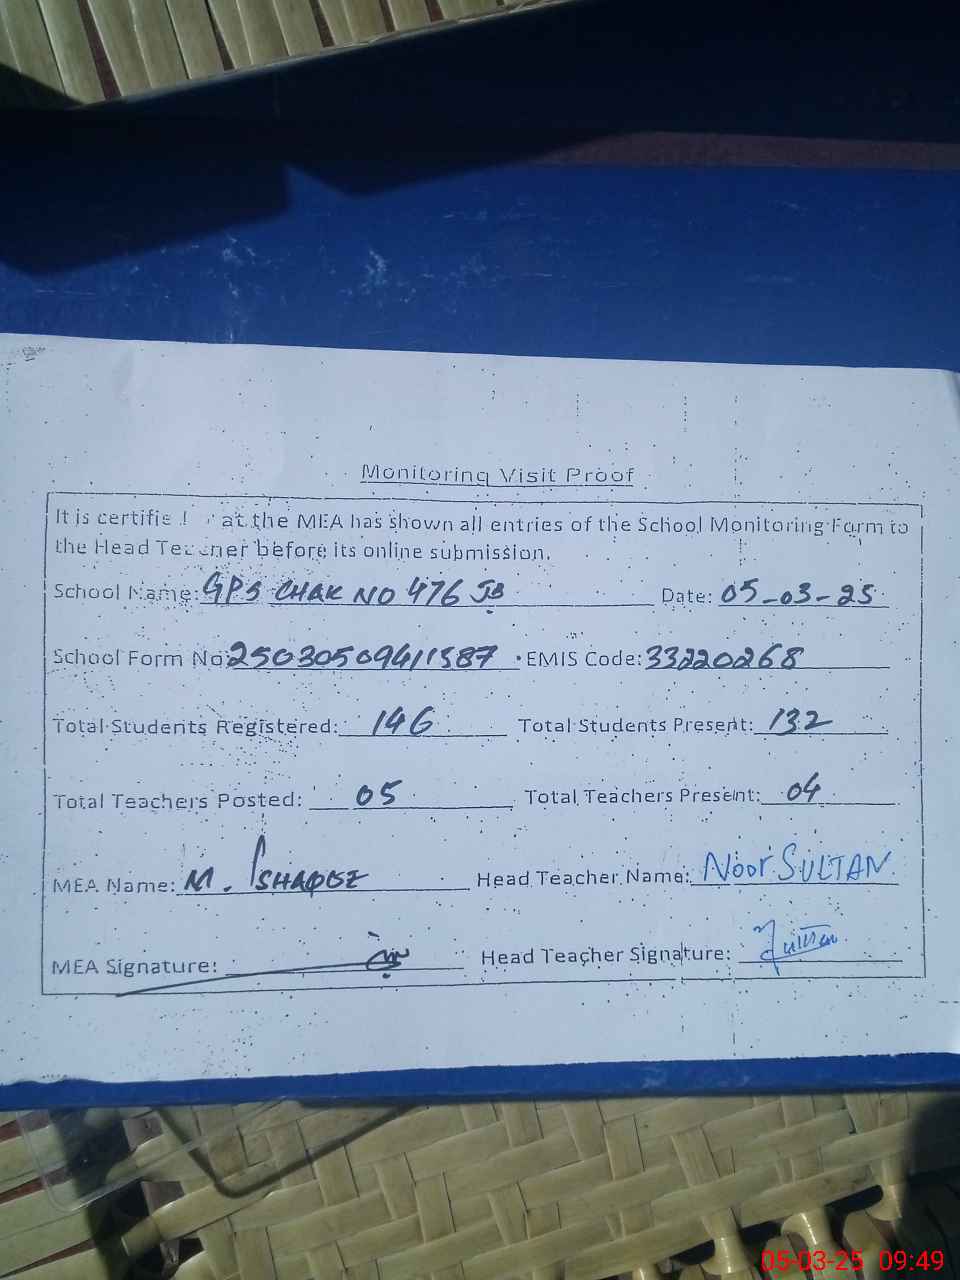 Monitoring Visit Proof
It is certified that the MEA has shown all entries of the School Monitoring Form to
the Head Teacher before its online submission.
School Name: GPS CHAK NO 476 JB Date: 05-03-25
School Form No: 25030509411587 EMIS Code: 33220268
Total Students Registered: 146 Total Students Present: 132
Total Teachers Posted: 05 Total Teachers Present: 04
MEA Name: M. Head Teacher Name: Noor SULTAN
MEA Signature: Head Teacher Signature:
05-03-25 09:49